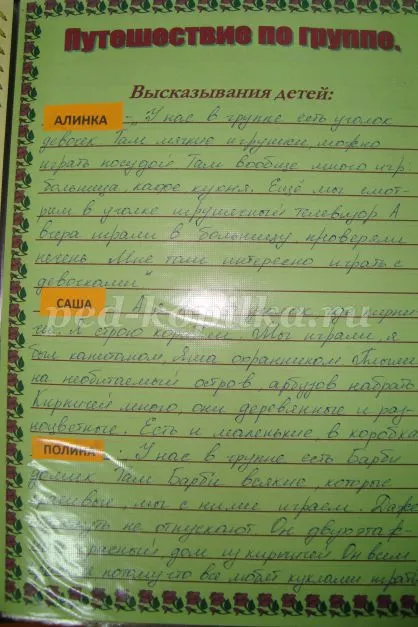 Путешествие по группе.
Высказывания детей:
АЛИНКА - „У нас в группе есть уголок
девочек Там мягкие игрушки, можно
играть посудой Там вообще много игр
больница, кафе, кухня. Ещё мы смот-
рим в уголке игрушечный телевизор А
вчера играли в больницу, проверяли
печень Мне там интересно играть с
девочками"
САША - А где кирпи-
чи. Я строю корабли. Мы играли, я
был капитаном, Яша охранником Плыли
на необитаемый остров, арбузов набрать
Кирпичей много, они деревянные и раз-
ноцветные. Есть и маленькие в коробке
ПОЛИНА - „У нас в группе есть Барби
домик Там Барби всякие, которые
красивые, мы с ними играем. Даже
не отпускают Он двухэтаж-
красный дом из кирпичей Он всем
потому что все любят куклами играть
ped-kopilka.ru